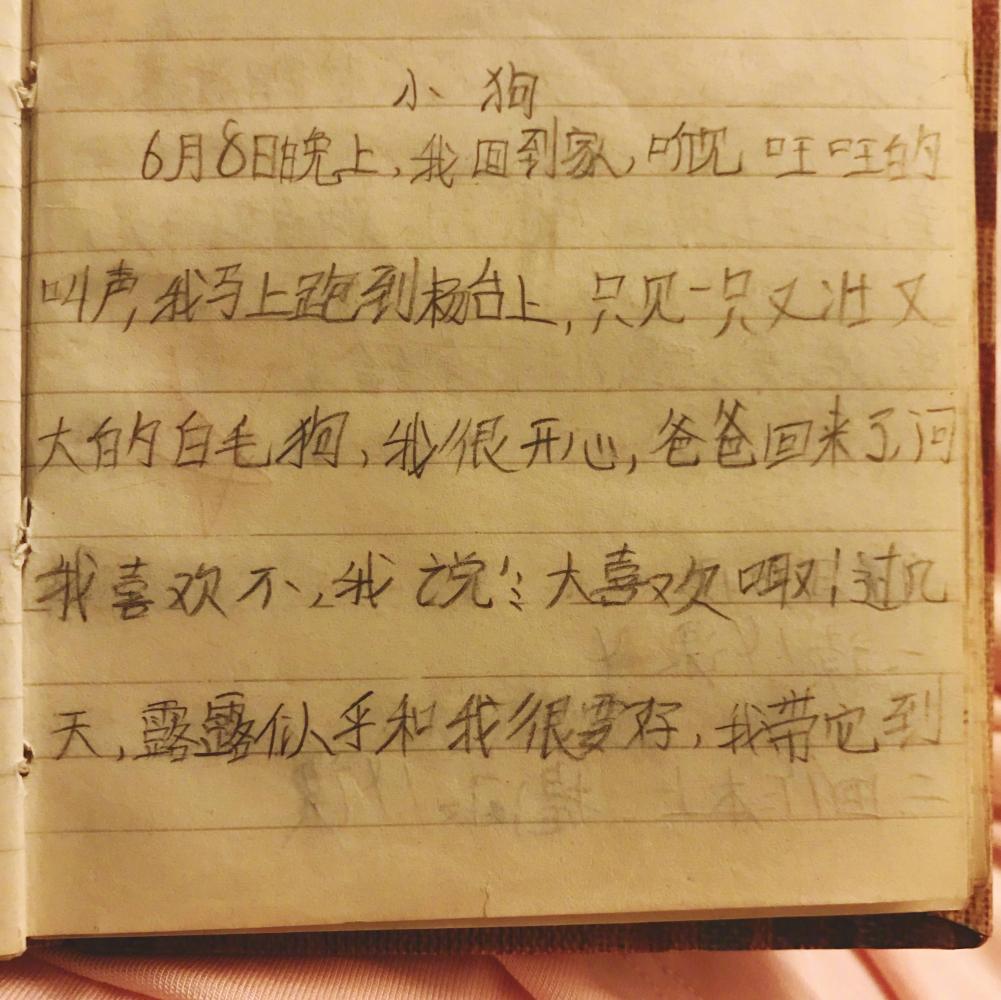 小狗
6月8日晚上,我回到家,听见 旺旺的
叫声,我马上跑到杨台上,只见一只又壮又
大的白毛狗,我很开心,爸爸回来了问
我喜欢不,我说:大喜欢啦!过几
天,露露似乎和我很要好,我带它到